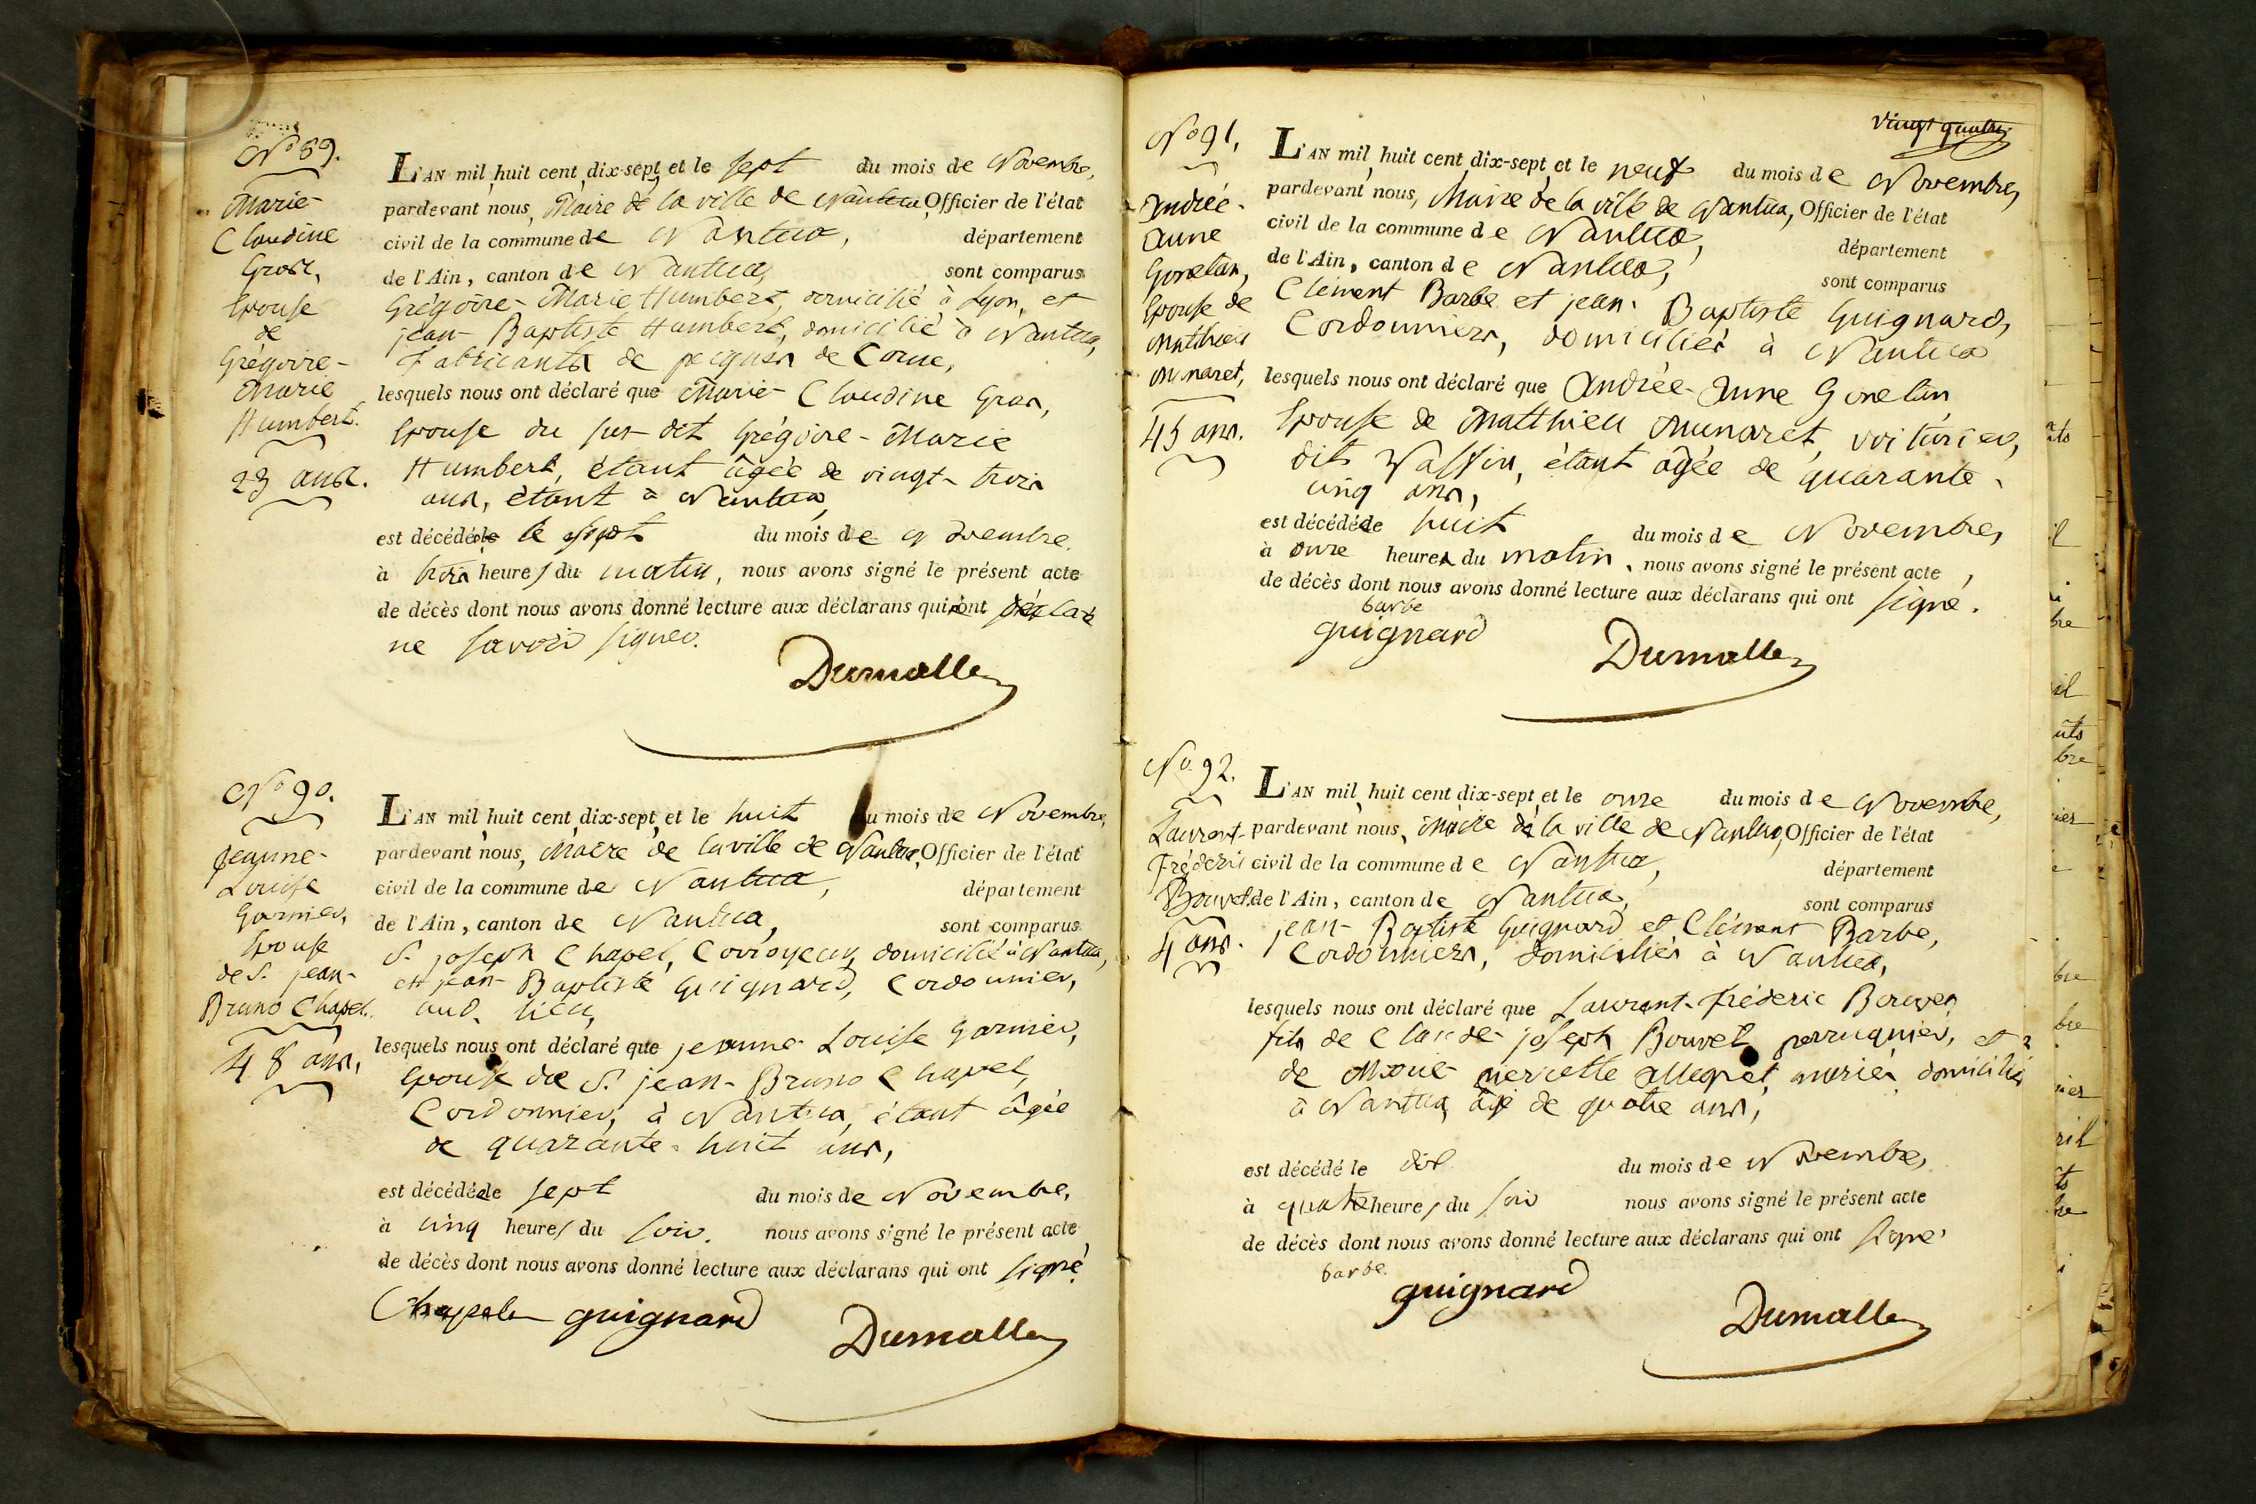 No 89.
Marie-
Claudine
Gros,
Epouse
de
Grégoire-
Marie
Humbert.
23 ans.
L'AN mil huit cent dix-sept, et le sept du mois de Novembre,
pardevant nous, Maire de la ville de Nantua, Officier de l'état
civil de la commune de Nantua, département
de l'Ain, canton de Nantua, sont comparus
Grégoire-Marie Humbert, domicilié à Lyon, et
jean-Baptiste Humbert, domicilié à Nantua,
Fabricants de peignes de Corne,
lesquels nous ont déclaré que Marie-Claudine Gros,
Epouse du sus-dit Grégoire-Marie
Humbert, étant âgée de vingt-trois
ans, étant à Nantua,
est décédée le sept du mois de Novembre.
à trois heures du matin, nous avons signé le présent acte
de décès dont nous avons donné lecture aux déclarans qui ont déclaré
ne savoir signer.
Dumalle
No 90.
jeanne-
Louise
Garnier,
Epouse
de S. jean-
Bruno Chapel.
48 ans.
L'AN mil huit cent dix-sept, et le huit du mois de Novembre,
pardevant nous, Maire de la ville de Nantua, Officier de l'état
civil de la commune de Nantua, département
de l'Ain, canton de Nantua, sont comparus
S. joseph Chapel, Corroyeur, domicilié à Nantua,
et jean-Baptiste Guignard, Cordonnier,
aud. lieu,
lesquels nous ont déclaré que jeanne-Louise Garnier,
Epouse de S. jean-Bruno Chapel,
Cordonnier, à Nantua, étant âgée
de quarante-huit ans,
est décédée le sept du mois de Novembre,
à cinq heures du soir. nous avons signé le présent acte
de décès dont nous avons donné lecture aux déclarans qui ont signé.
Chapel guignard
Dumalle
vingt quatre
No 91,
Andrée-
Anne
Gonetan,
Epouse de
Matthieu
Munaret,
45 ans.
L'AN mil huit cent dix-sept, et le neuf du mois de Novembre,
pardevant nous, Maire de la ville de Nantua, Officier de l'état
civil de la commune de Nantua, département
de l'Ain, canton de Nantua, sont comparus
Clément Barbe et jean-Baptiste Guignard,
Cordonniers, domiciliés à Nantua
lesquels nous ont déclaré que Andrée-Anne Gonetan
Epouse de Matthieu Munaret, voiturier,
dit étant âgée de quarante-
cinq ans,
est décédée le huit du mois de Novembre,
à onze heures du matin, nous avons signé le présent acte,
de décès dont nous avons donné lecture aux déclarans qui ont signé.
barbe
guignard
Dumalle
No 92.
Laurent-
Fréderic
Bouvet.
4 ans.
L'AN mil huit cent dix-sept, et le onze du mois de Novembre,
pardevant nous, Maire de la ville de Nantua, Officier de l'état
civil de la commune de Nantua, département
de l'Ain, canton de Nantua, sont comparus
jean-Baptiste Guignard et Clément Barbe,
Cordonniers, domiciliés à Nantua,
lesquels nous ont déclaré que Laurent-Fréderic Bouvet,
fils de Claude-joseph Bouvet, perruquier, et
de Marie- Allegret, mariés, domiciliés
à Nantua, âgé de quatre ans,
est décédé le dix du mois de Novembre,
à quatre heures du soir nous avons signé le présent acte
de décès dont nous avons donné lecture aux déclarans qui ont signé.
barbe.
guignard
Dumalle